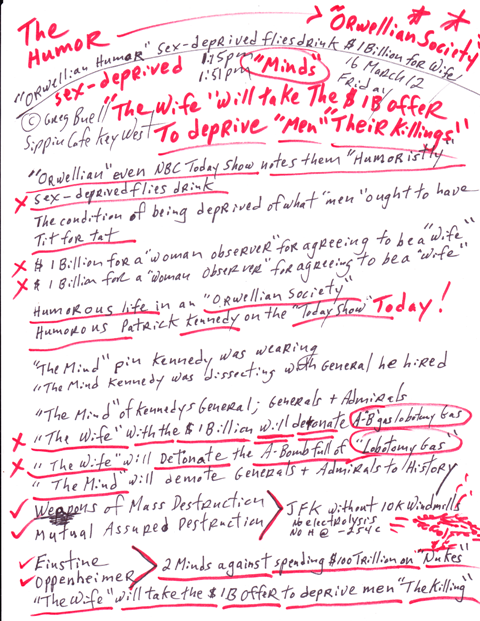 The Humor
"Orwellian Society"
"Orwellian Humor" sex-deprived flies drink $1Billion for Wife
sex-deprived
1:15pm
1:51pm
"Minds"
16 March 12
Friday
"The Wife" Will take The $1B offer
© Greg Buell
Sippin Cafe Key West
To deprive "Men" "Their Killings"
"Orwellian" even NBC Today Show notes them "Humoristly
sex-deprived flies drink
The condition of being deprived of what "men" ought to have
Tit for tat
$1Billion for a "woman observer" for agreeing to be a "Wife"
$1Billion for a "woman observer" for agreeing to be a "Wife"
Humorous life in an "Orwellian Society"
Humorous Patrick Kennedy on the "Today Show" Today!
"The Mind" pin Kennedy was wearing
"The Mind Kennedy was dissecting with General he hired
"The Mind" of Kennedys General; Generals + Admirals
"The Wife" with the $1Billion will detonate A-B gas lobotomy Gas
"The Wife" will Detonate the A-Bomb full of "Lobotomy Gas"
"The Mind" will demote Generals + Admirals to History
Weapons of Mass Destruction
Mutual Assured Destruction
JFK without 10K Windmills
No electrolysis
No H @ -254C
Einstine
Oppenheimer
2 Minds against spending $100Trillion on "Nukes"
"The Wife" will take the $1B offer to deprive men "The Killing"